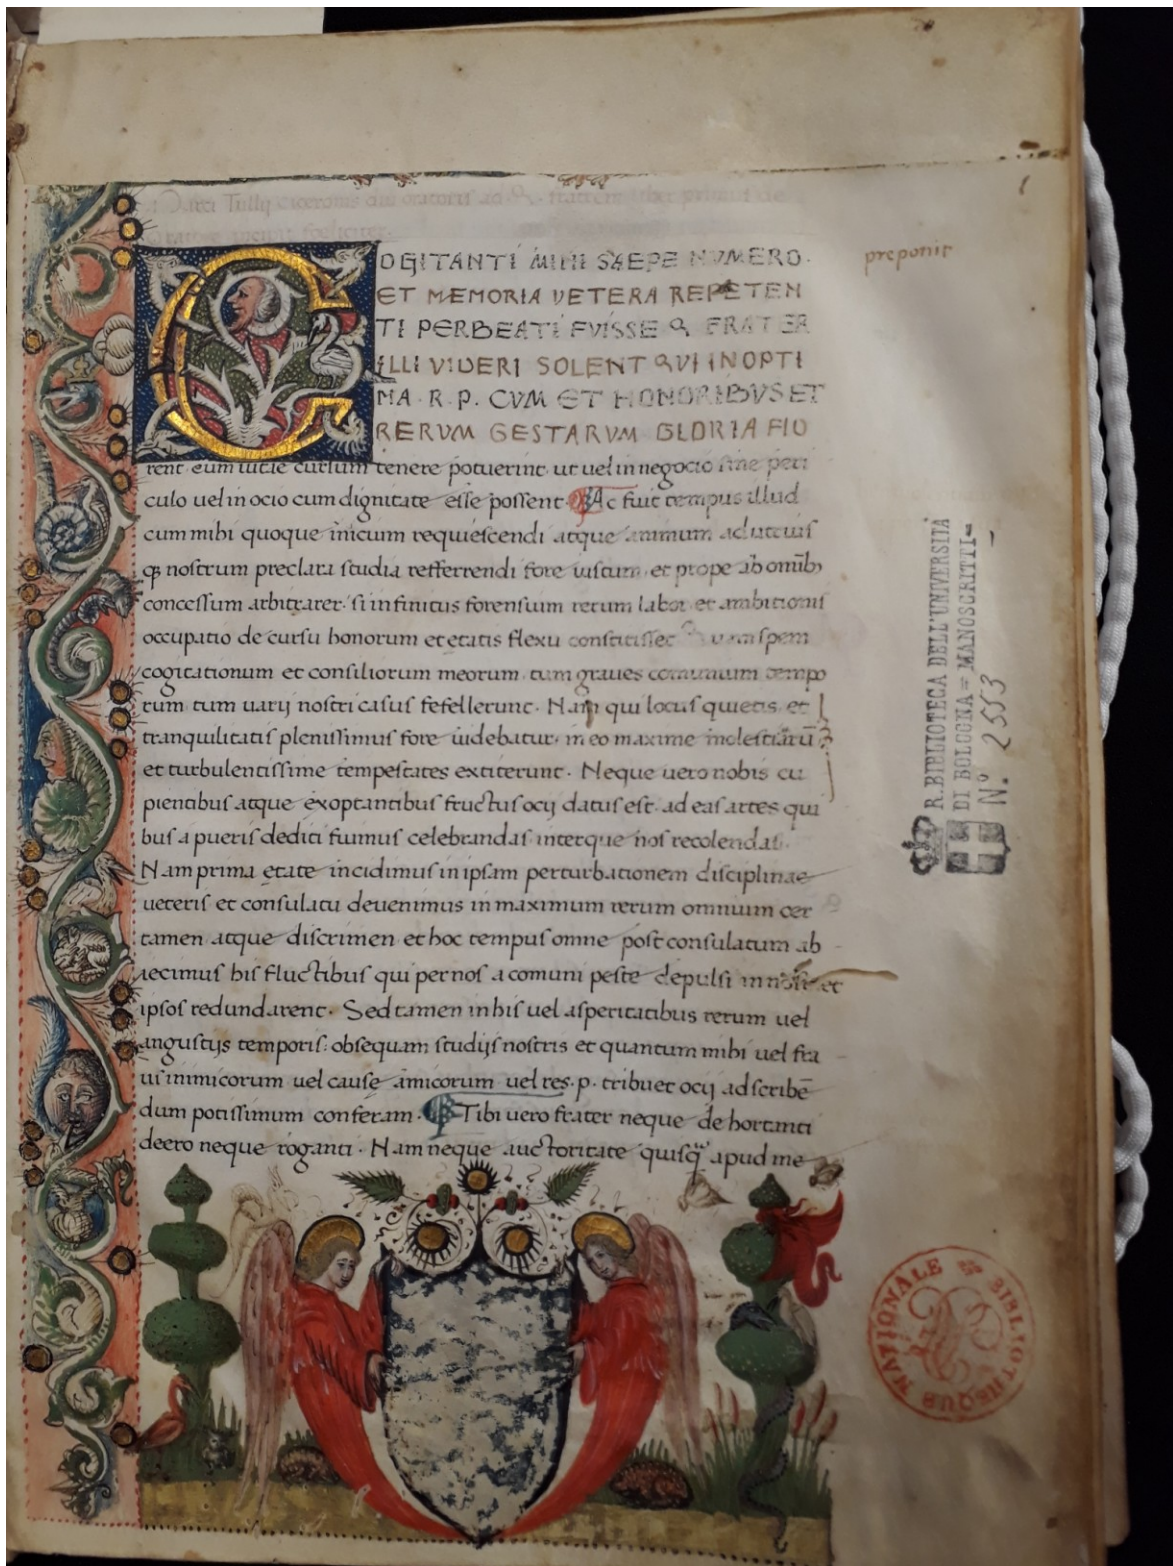 Marci Tullij ciceronis oratoris ad Q. fratrem liber primus de
oratore incipit foeliciter
COGITANTI MIHI SAEPE NUMERO.
ET MEMORIA VETERA REPETEN
TI PERBEATI FVISSE Q FRATER
ILLI VIDERI SOLENT QVI IN OPTI
MA . R . P . CVM ET HONORIBVS ET
RERVM GESTARVM GLORIA FLO
rent eum tenere potuerint ut uel in negocio sine peri
culo uel in ocio cum dignitate esse possent. Ac fuit tempus illud
cum mihi quoque inicum requiescendi atque animum ad utrius
q nostrum preclara studia refferrendi fore et prope ab omib
concessum arbitrarer. si infinitus forensium rerum labor et ambitionis
occupatio de cursu honorum et etatis flexu constitisset spem
cogitationum et consiliorum meorum tum graues tempo
rum tum uarij nostri casus fefellerunt. Nam qui locus quietis et
tranquilitatis plenissimus fore uidebatur in eo maxime molestiarū
et turbulentissime tempestates extiterunt. Neque uero nobis cu
pientibus atque exoptantibus fructus ocij datus est ad eas artes qui
bus a pueris dediti fuimus celebrandas interque nos recolendas.
Nam prima ętate incidimus in ipsam perturbationem disciplinae
ueteris et consulatu deuenimus in maximum rerum omnium cer
tamen atque discrimen et hoc tempus omne post consulatum ab
iecimus his fluctibus qui per nos a comuni peste depulsi in et
ipsos redundarent. Sed tamen in his uel asperitatibus rerum uel
angustijs temporis: obsequam studijs nostris et quantum mihi uel fra
us inimicorum uel causę amicorum uel res. p. tribuet ocij ad scribē
dum potissimum conferam. Tibi uero frater neque de hortanti
deero neque roganti. Nam neque auctoritate quisq apud me
preponit
R. BIBLIOTECA DELL'UNIVERSITÀ
DI BOLOGNA = MANOSCRITTI =
N.° 2553
BIBLIOTHEQUE NATIONALE